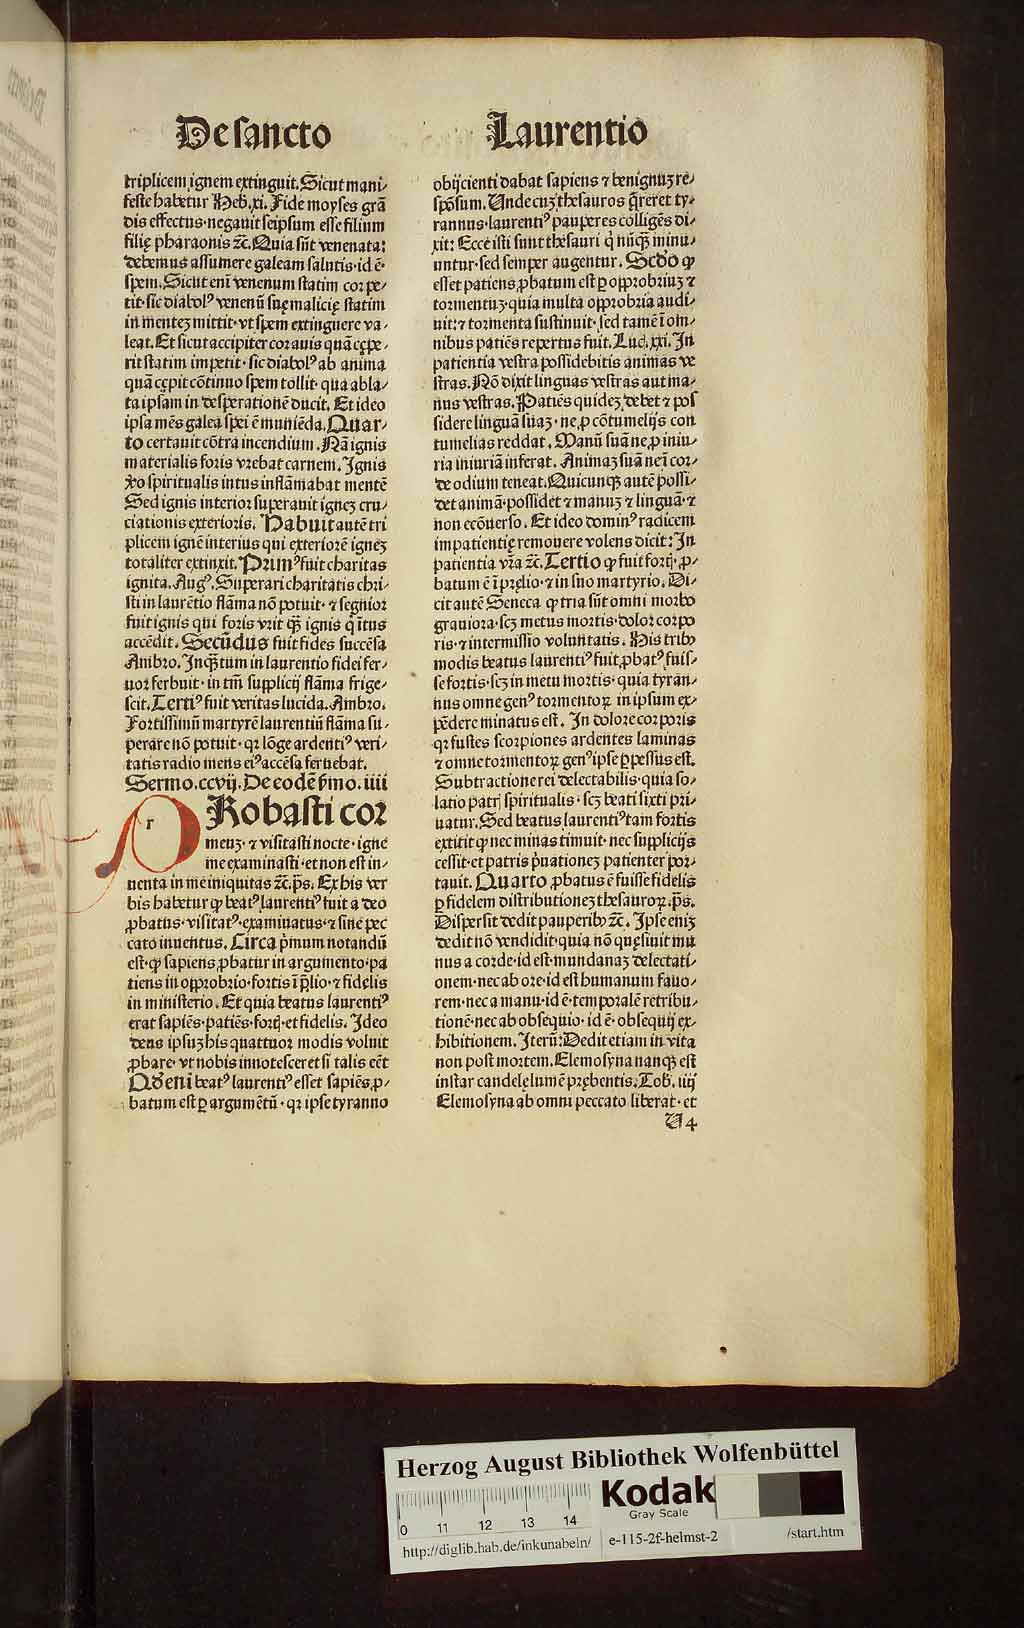 De sancto
Laurentio
triplicem ignem extinguit. Sicut mani⸗
feste habetur Heb̃. xi. Fide moyses grã
dis effectus·negauit seipsum esse filium
filię pharaonis ⁊c̃. Quia sũt venenata:
debemus assumere galeam salutis·id ẽ·
spem. Sicut enĩ venenum statim cor pe⸗
tit·sic diabolꝰ venenũ suę malicię statim
in mentez mittit·vt spem extinguere va⸗
leat. Et sicut accipiter cor auis quã cępe⸗
rit statim impetit·sic diabolꝰ ab anima
quã cępit cõtinuo spem tollit·qua abla⸗
ta ipsam in desperationẽ ducit. Et ideo
ipsa mẽs galea spei ẽ muniẽda. Quar⸗
to certauit cõtra incendium. Nã ignis
materialis foris vrebat carnem. Ignis
ꝟo spiritualis intus inflãmabat mentẽ
Sed ignis interior superauit ignez cru⸗
ciationis exterioris. Habuit autẽ tri
plicem ignẽ interius qui exteriorẽ ignez
totaliter extinxit. Primꝰ fuit charitas
ignita. Augꝰ. Superari charitatis chri⸗
sti in laurẽtio flãma nõ potuit·⁊ segnior
fuit ignis qui foris vrit qꝫ̃ ignis q ĩtus
accẽdit. Secũdus fuit fides succẽsa
Ambro. Inqꝫ̃tum in laurentio fidei fer⸗
uor ferbuit·in tm̃ supplicij flãma frige⸗
scit. Tertiꝰ fuit veritas lucida. Ambro.
Fortissimũ martyrẽ laurentiũ flãma su⸗
perare nõ potuit·qꝛ lõge ardentiꝰ veri⸗
tatis radio mens eiꝰ accẽsa feruebat.
Sermo.ccvij. De eodẽ p̃mo. iiii
r
PRobasti cor
meuz·⁊ visitasti nocte·igne
me examinasti·et non est in⸗
uenta in me iniquitas ⁊c̃. p̃s. Ex his ver
bis habetur ꝙ beatꝰ laurentiꝰ fuit a deo
ꝓbatus·visitatꝰ·examinatus·⁊ sine pec
cato inuentus. Circa p̃mum notandũ
est·ꝙ sapiens ꝓbatur in argumento·pa
tiens in opprobrio·fortis ĩ p̃lio·⁊ fidelis
in ministerio. Et quia beatus laurentiꝰ
erat sapiẽs·patiẽs·fortꝭ·et fidelis. Ideo
deus ipsuz his quattuor modis voluit
ꝓbare·vt nobis innotesceret si talis eẽt
Qđ eni beatꝰ laurentiꝰ esset sapiẽs ꝓ⸗
batum est ꝑ argumẽtũ·qꝛ ipse tyranno
obijcienti dabat sapiens ⁊ benignuz re⸗
spõsum. Unde cuz thesauros q̃reret ty⸗
rannus·laurentiꝰ pauperes colligẽs di⸗
xit: Ecce isti sunt thesauri q̇ nũqꝫ̃ minu⸗
untur·sed semper augentur. Scđo ꝙ
esset patiens ꝓbatum est ꝑ opprobriuz ⁊
tormentuz·quia multa opprobria audi⸗
uit:⁊ tormenta sustinuit·sed tamẽ ĩ om⸗
nibus patiẽs repertus fuit. Luc̃. xxi. In
patientia vestra possidebitis animas ve
stras. Nõ dixit linguas vestras aut ma⸗
nus vestras. Patiẽs quidez debet ⁊ pos
sidere linguã suaz·ne ꝓ cõtumelijs con
tumelias reddat. Manũ suã ne ꝓ iniu⸗
ria iniuriã inferat. Animaz suã ne ĩ cor⸗
de odium teneat. Quicunqꝫ autẽ possi⸗
det animã·possidet ⁊ manuz ⁊ linguã·⁊
non ecõuerso. Et ideo dominꝰ radicem
impatientię remouere volens dicit: In
patientia vr̃a ⁊c̃. Tertio ꝙ fuit fortꝭ ꝓ⸗
batum ẽ ĩ pręlio·⁊ in suo martyrio. Di⸗
cit autẽ Seneca ꝙ tria sũt omni morbo
grauiora·scꝫ metus mortis·dolor corpo
ris·⁊ intermissio voluntatis. His tribꝰ
modis beatus laurentiꝰ fuit ꝓbatꝰ fuis⸗
se fortis·scꝫ in metu mortis·quia tyran⸗
nus omne genꝰ tormentoꝝ in ipsum ex⸗
pẽdere minatus est. In dolore corporis
qꝛ fustes scorpiones ardentes laminas
⁊ omne tormentoꝝ genꝰ ipse ꝑpessus est.
Subtractione rei delectabilis·quia so⸗
latio patrꝭ spiritualis·scꝫ beati sixti pri⸗
uatur. Sed beatus laurentiꝰ tam fortis
extitit ꝙ nec minas timuit·nec supplicijs
cessit·et patris p̃uationez patienter por⸗
tauit. Quarto ꝓbatus ẽ fuisse fidelis
ꝑ fidelem distributionez thesauroꝝ. p̃s.
Dispersit dedit pauperibꝰ ⁊c̃. Ipse eniz
dedit nõ vendidit·quia nõ quęsiuit mu
nus a corde·id est·mundanaz delectati⸗
onem·nec ab ore·id est humanum fauo⸗
rem·nec a manu·id ẽ·temporalẽ retribu⸗
tionẽ·nec ab obsequio·id ẽ·obsequij ex⸗
hibitionem. Iterũ: Dedit etiam in vita
non post mortem. Elemosyna nanqꝫ est
instar candelę lumẽ prębentis. Tob̃. iiij
Elemosyna ab omni peccato liberat·et
U 4
Herzog August Bibliothek Wolfenbüttel
Kodak
Gray Scale
0 11 12 13 14
http://diglib.hab.de/inkunabeln/
e-115-2f-helmst-2
/start.htm